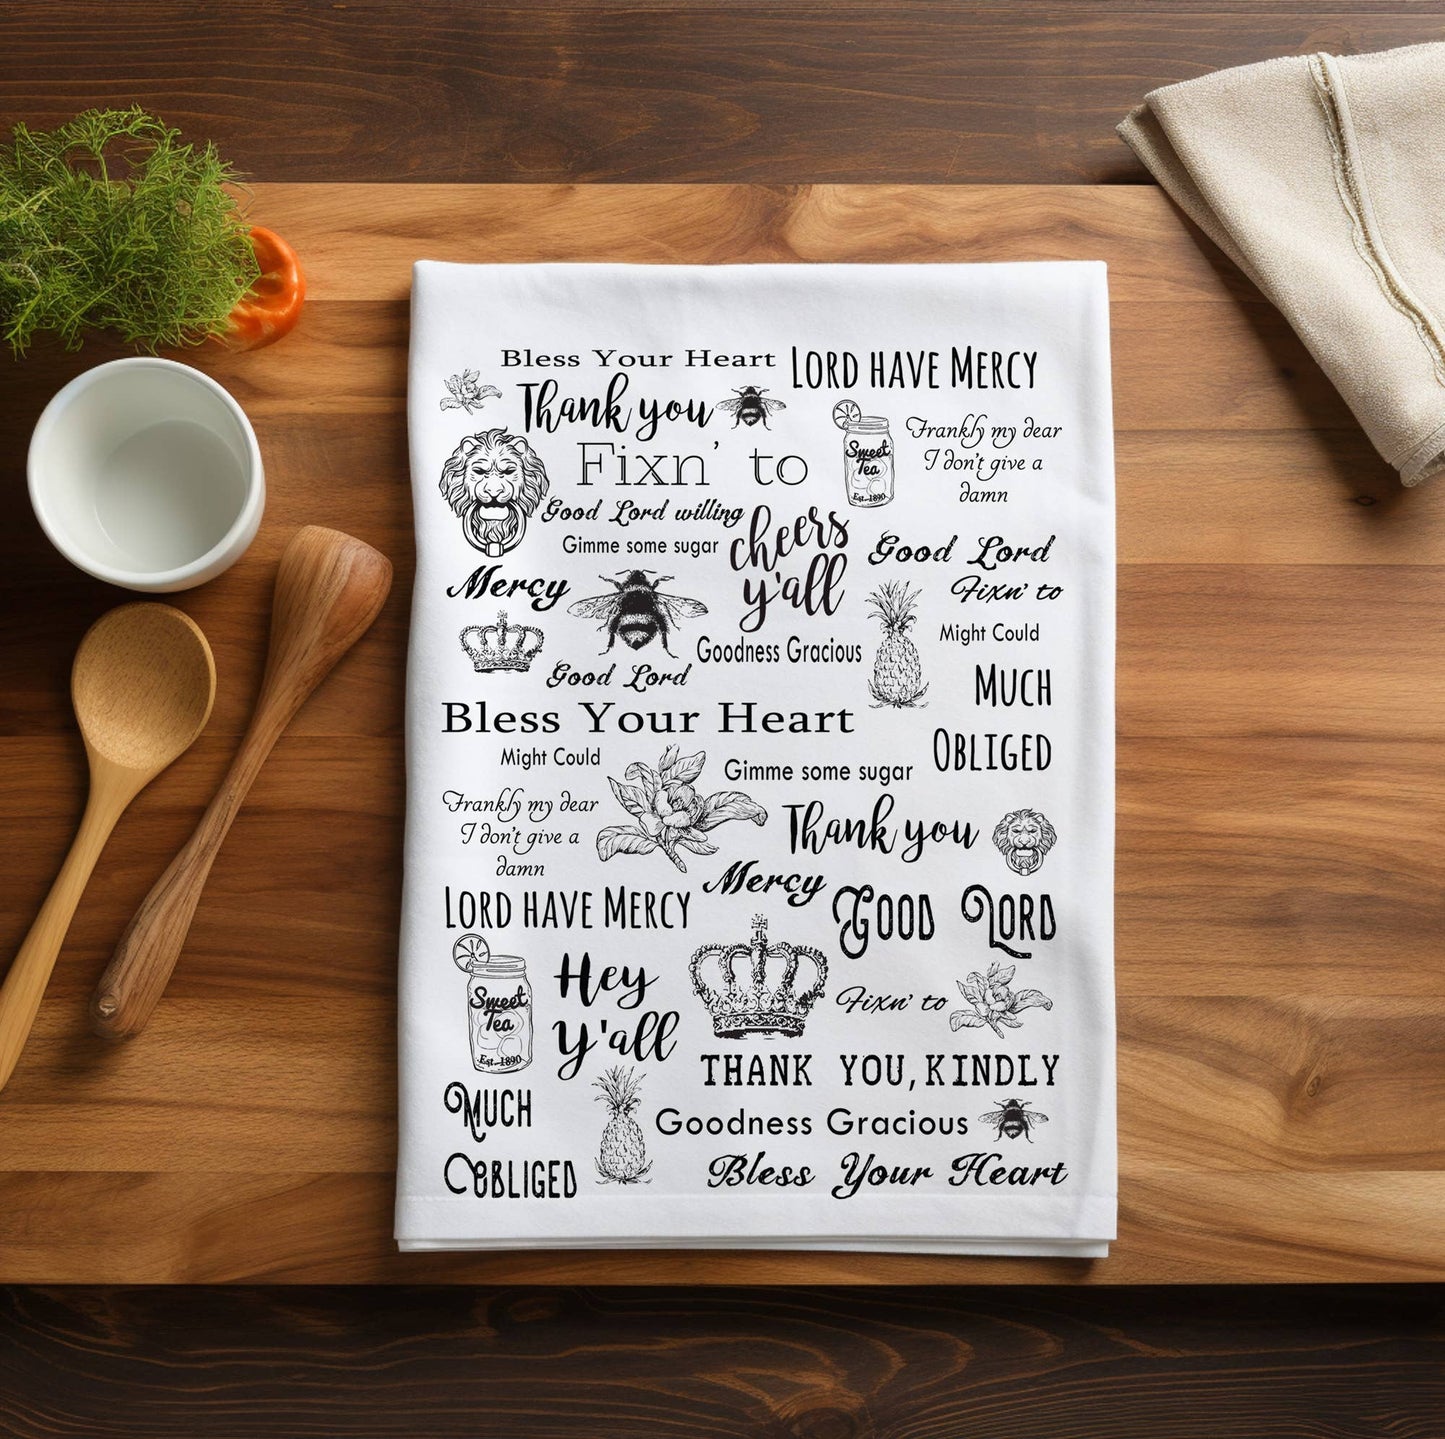 Bless Your Heart
LORD HAVE MERCY
Thank you
Fixn' to
Sweet
Tea
Est. 1890
Frankly my dear
I don't give a
damn
Good Lord willing
Gimme some sugar
cheers
y'all
Good Lord
Mercy
Fixn' to
Might Could
Goodness Gracious
Good Lord
MUCH
OBLIGED
Bless Your Heart
Might Could
Gimme some sugar
Frankly my dear
I don't give a
damn
Thank you
Mercy
LORD HAVE MERCY
GOOD LORD
Sweet
Tea
Est. 1890
Hey
Y'all
Fixn' to
THANK YOU, KINDLY
MUCH
OBLIGED
Goodness Gracious
Bless Your Heart